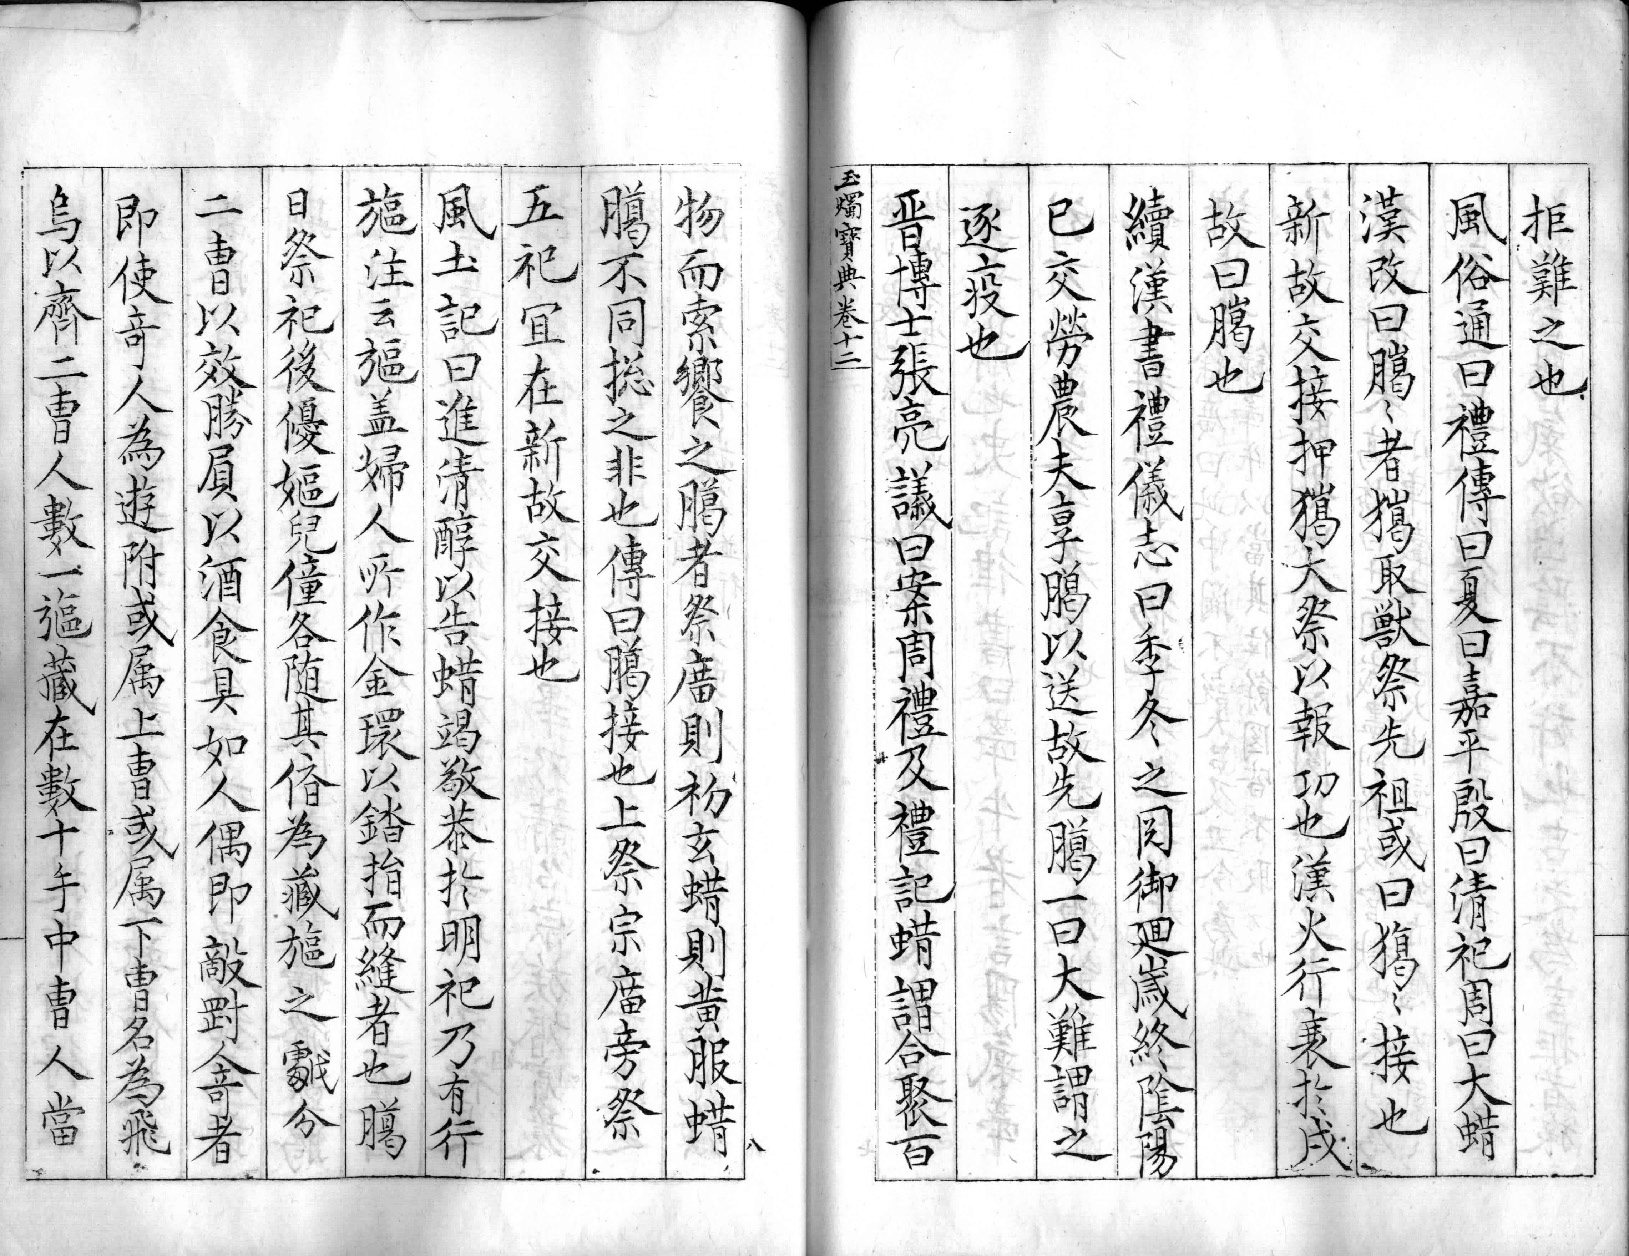 拒難之也
風俗通曰禮傳曰夏曰嘉平殷曰清祀周曰大蜡
漢改曰臈〻者獦取獸祭先祖或曰獦〻接也
新故交接押獦大祭以報功也漢火行衰於戌
故曰臈也
續漢書禮儀志曰季冬之図御𢌞歲終陰陽
已交勞農夫享臈以送故先臈一日大難謂之
逐疫也
晉博士張亮議曰案周禮及禮記蜡謂合聚百
玉燭寶典卷十二
物而索饗之臈者祭廣則初玄蜡則黃服蜡
臈不同捴之非也傳曰臈接也上祭宗廣旁祭
五祀冝在新故交接也
風土記曰進清醇以告蜡竭敬恭於明祀乃有行
䘫注云䘫盖婦人所作金環以錔指而縫者也臈
日祭祀後優嫗兒僮各随其㑪為藏䘫之戲分
二曺以效勝屓以酒食具如人偶即敵對人竒者
即使竒人為遊附或属上曺或属下曺名為飛
烏以齊二曺人數一䘫藏在數十手中曺人當
八